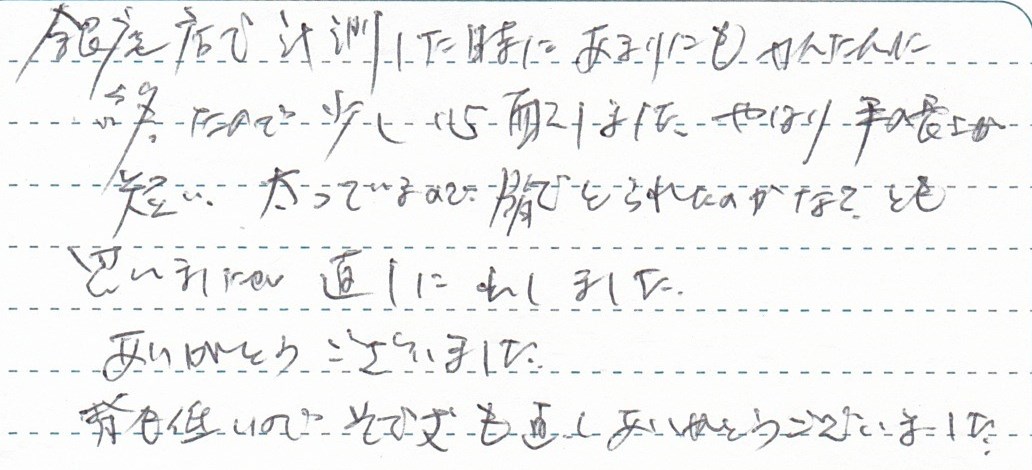 銀座店で計測した時にあまりにもかんたんに
終ったので少し心配しました。やはり手の長さが
短い、太っているので腰でとられたのかなて?とも
思いましたが直しにれしました。
ありがとうございました。
背も低いのでそで丈も直しありがとうございました。